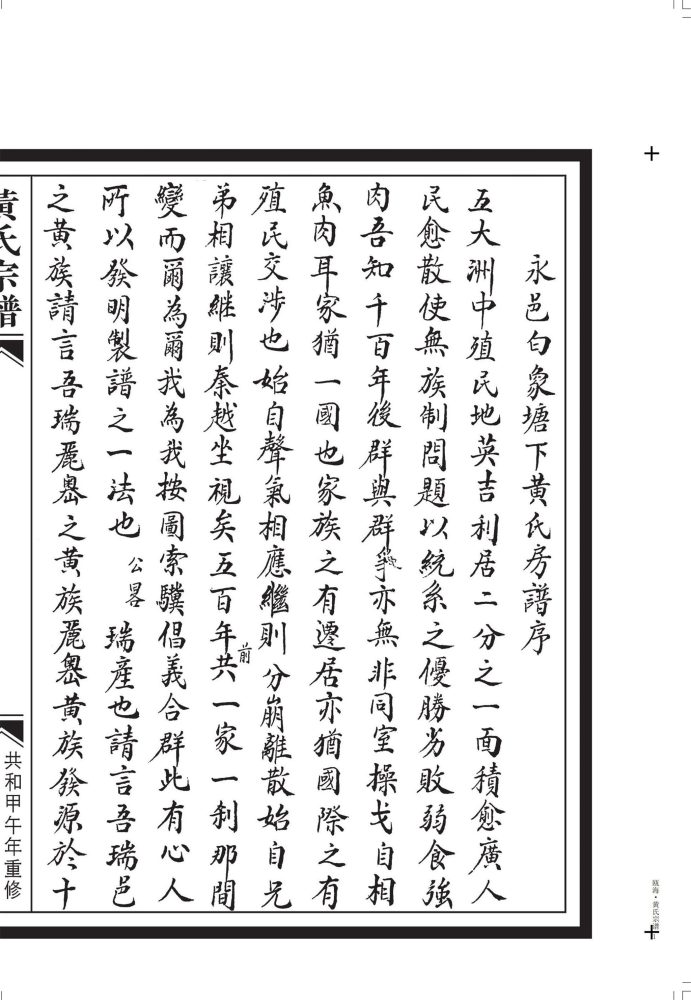 永邑白象塘下黃氏房譜序
五大洲中殖民地英吉利居二分之一面積愈廣人
民愈散使無族制問題以統系之優勝劣敗弱食強
肉吾知千百年後群與群爭亦無非同室操戈自相
魚肉耳家猶一國也家族之有遷居亦猶國際之有
殖民交涉也始自聲氣相應繼則分崩離散始自兄
弟相讓継則秦越坐視矣五百年前共一家一刹那間
變而爾為爾我為我按圖索驥倡義合群此有心人
所以發明製譜之一法也公畧瑞產也請言吾瑞邑
之黃族請言吾瑞麗嶴之黃族麗嶴黃族發源於十
黃氏宗譜
共和甲午年重修
瓯海·黄氏宗谱